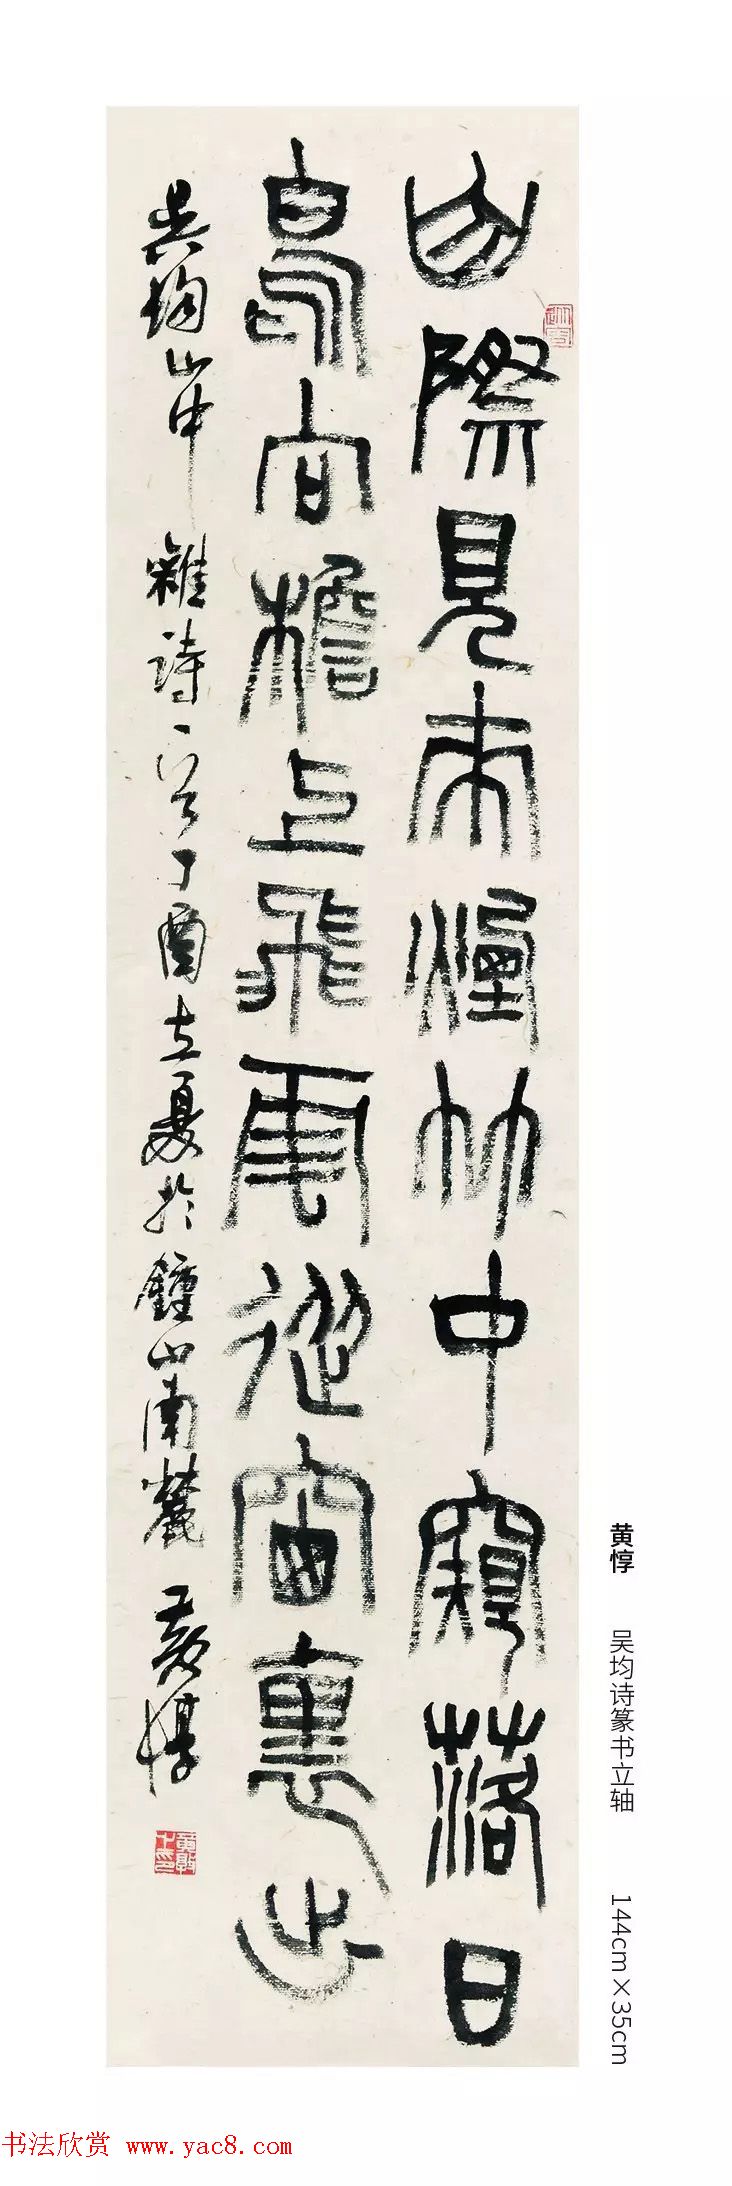 山際見來煙竹中窺落日
鳥向檐上飛雲從窗裏出
吳均山中雜詩一首丁酉立夏於鍾山南麓 黃惇
黄惇 吴均诗篆书立轴 144cm×35cm
书法欣赏 www.yac8.com